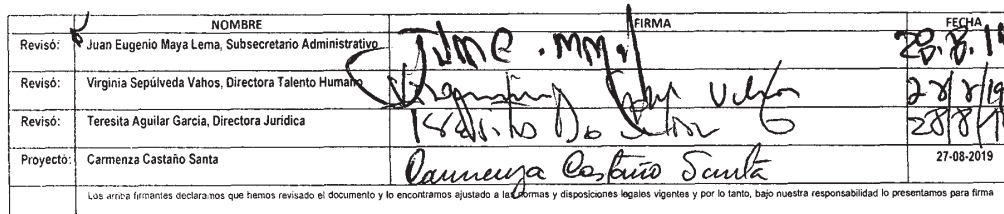 NOMBRE FIRMA FECHA
Revisó: Juan Eugenio Maya Lema, Subsecretario Administrativo 28.8.19
Revisó: Virginia Sepúlveda Vahos, Directora Talento Humano
Revisó: Teresita Aguilar Garcia, Directora Jurídica 28/8/19
Proyectó: Carmenza Castaño Santa Carmenza Castaño Santa 27-08-2019
Los arriba firmantes declaramos que hemos revisado el documento y lo encontramos ajustado a las normas y disposiciones legales vigentes y por lo tanto, bajo nuestra responsabilidad lo presentamos para firma